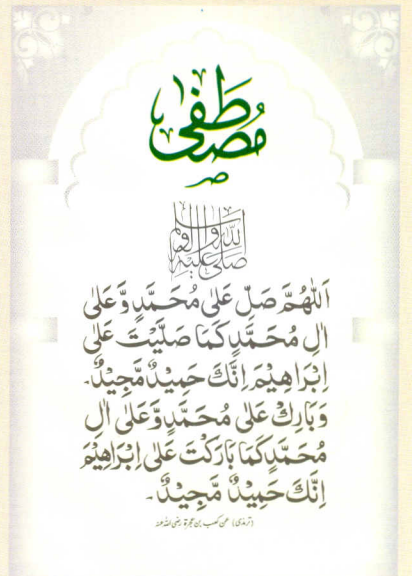 مصطفیٰ
ﷺ
صلی اللہ علیہ وآلہ وسلم
اَللّٰهُمَّ صَلِّ عَلٰی مُحَمَّدٍ وَّعَلٰی
اٰلِ مُحَمَّدٍ كَمَا صَلَّيْتَ عَلٰی
اِبْرَاهِيْمَ اِنَّكَ حَمِيْدٌ مَّجِيْدٌ۔
وَبَارِكْ عَلٰی مُحَمَّدٍ وَّعَلٰی اٰلِ
مُحَمَّدٍ كَمَا بَارَكْتَ عَلٰی اِبْرَاهِيْمَ
اِنَّكَ حَمِيْدٌ مَّجِيْدٌ۔
(ترمذی) عن کعب بن عجرۃ رضی اللہ عنہ